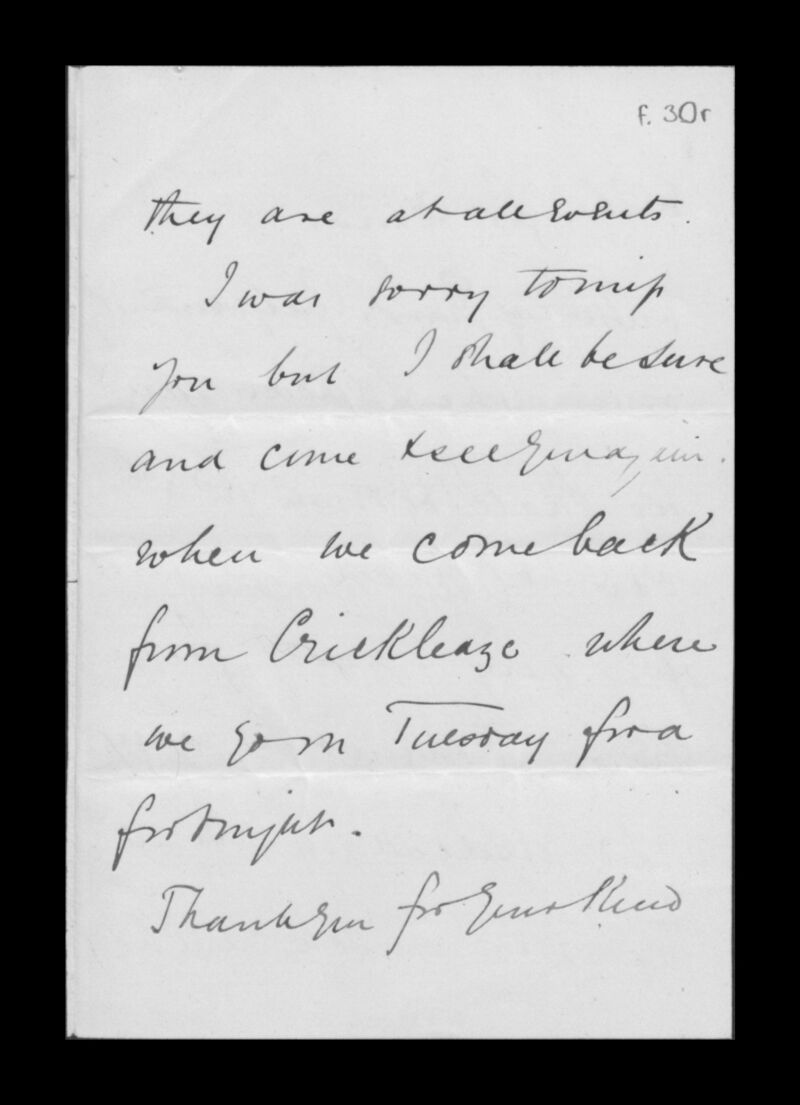 f. 30r
they are at all events.
I was sorry to miss
you but I shall be sure
and come & see you again.
when we come back
from Crickleaze where
we go on Tuesday for a
fortnight.
Thank you for your kind